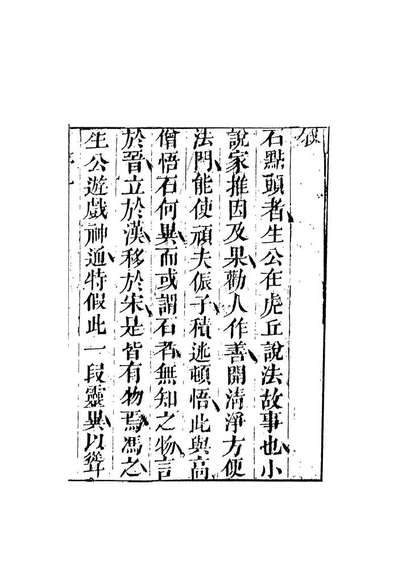 叙
石點頭者生公在虎丘說法故事也小
說家推因及果勸人作善開清淨方便
法門能使頑夫倀子積迷頓悟此與高
僧悟石何異而或謂石者無知之物言
於晉立於漢移於宋是皆有物焉馮之
生公遊戲神通特假此一段靈異以聳